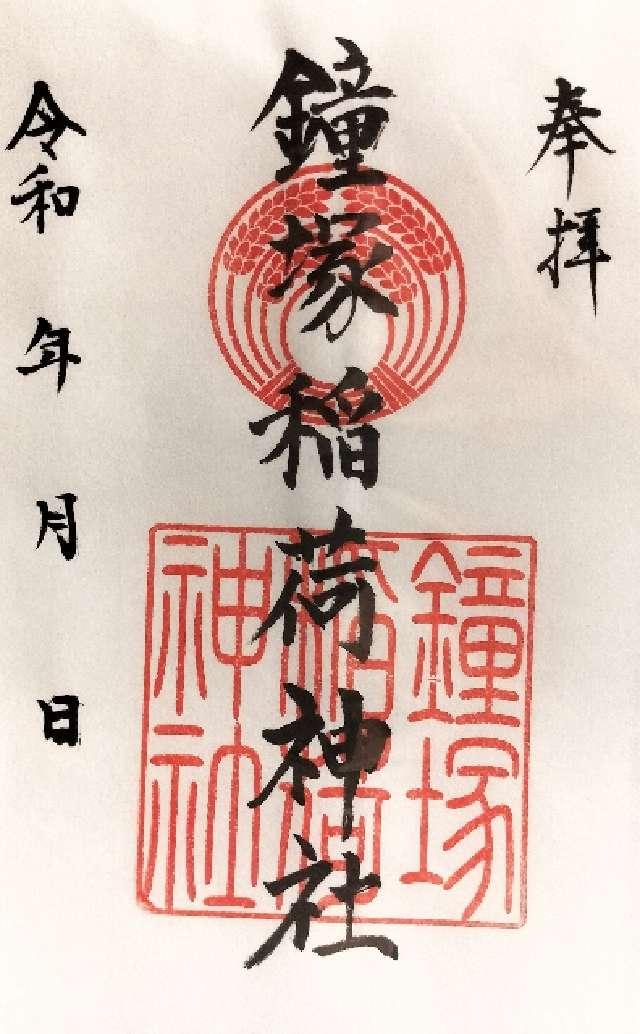 奉拝
鐘塚稲荷神社
鐘塚
稲荷
神社
令和 年 月 日